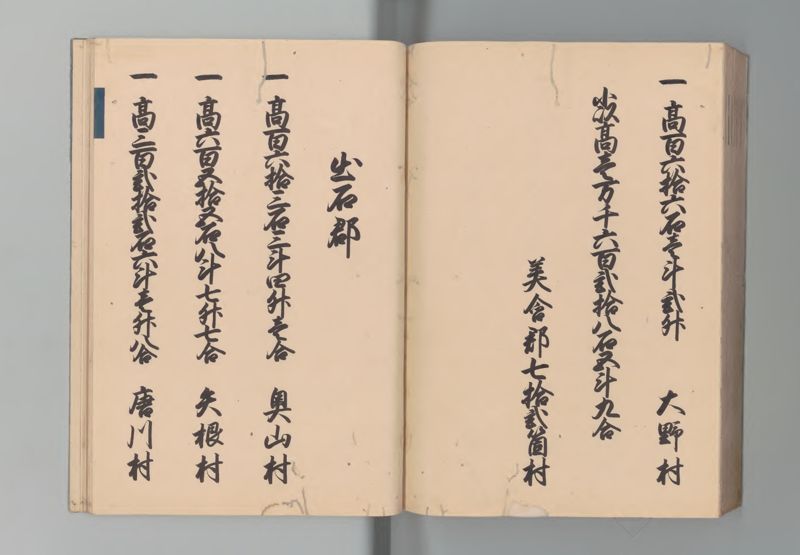 一 高百六拾六石壱斗弐升 大野村
小以高壱万千六百弐拾八石五斗九合
美含郡七拾弐箇村
出石郡
一 高百六拾三石三斗四升壱合 奥山村
一 高六百五拾五石八斗七升七合 矢根村
一 高三百弐拾弐石六斗壱升八合 唐川村